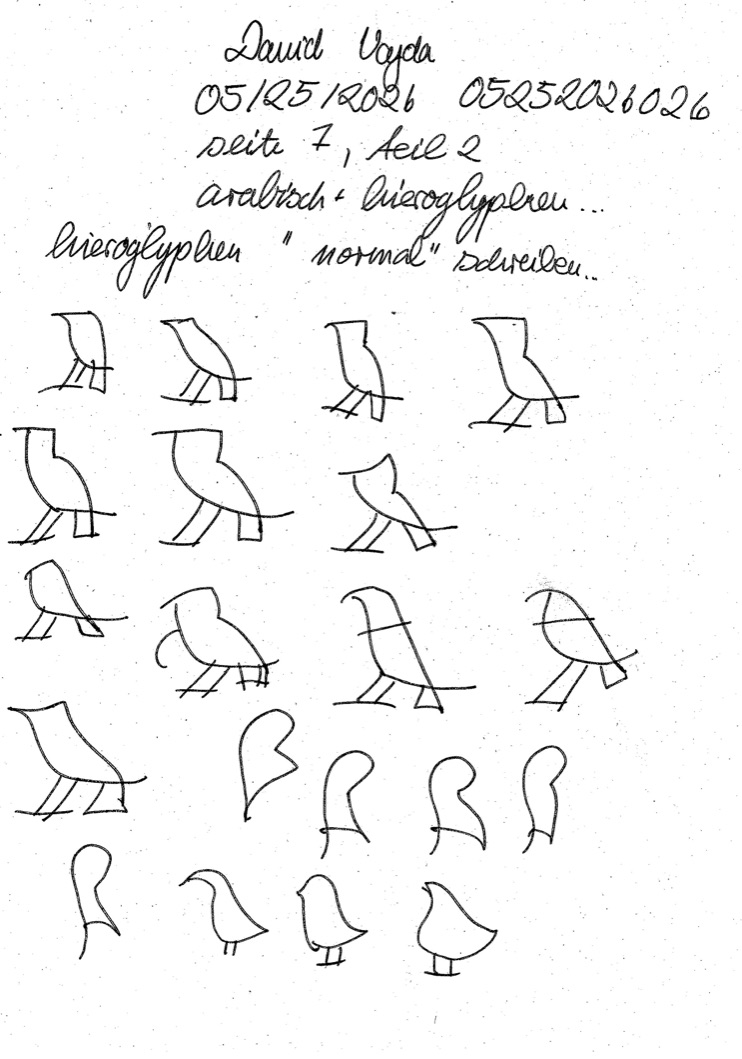 David Vajda
05/25/2026 05252026026
seite 7, teil 2
arabisch + hieroglyphen...
hieroglyphen "normal" schreiben..